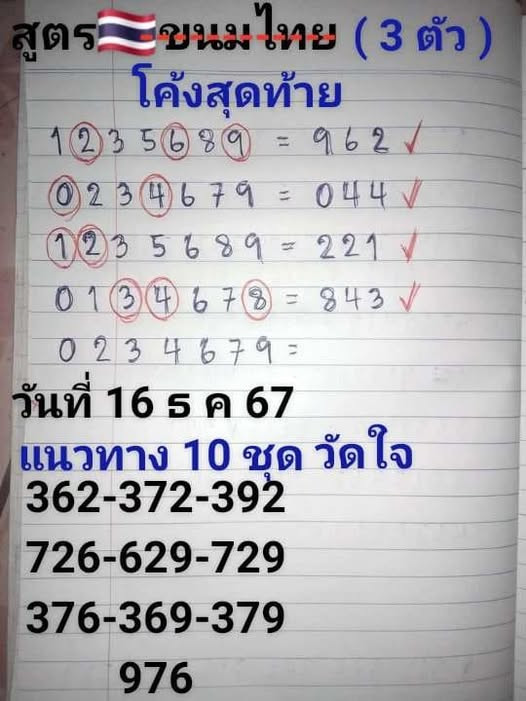 สูตร🇹🇭ขนมไทย ( 3 ตัว )
โค้งสุดท้าย
1 2 3 5 6 8 9 = 9 6 2 ✓
0 2 3 4 6 7 9 = 0 4 4 ✓
1 2 3 5 6 8 9 = 2 2 1 ✓
0 1 3 4 6 7 8 = 8 4 3 ✓
0 2 3 4 6 7 9 =
วันที่ 16 ธ ค 67
แนวทาง 10 ชุด วัดใจ
362-372-392
726-629-729
376-369-379
976